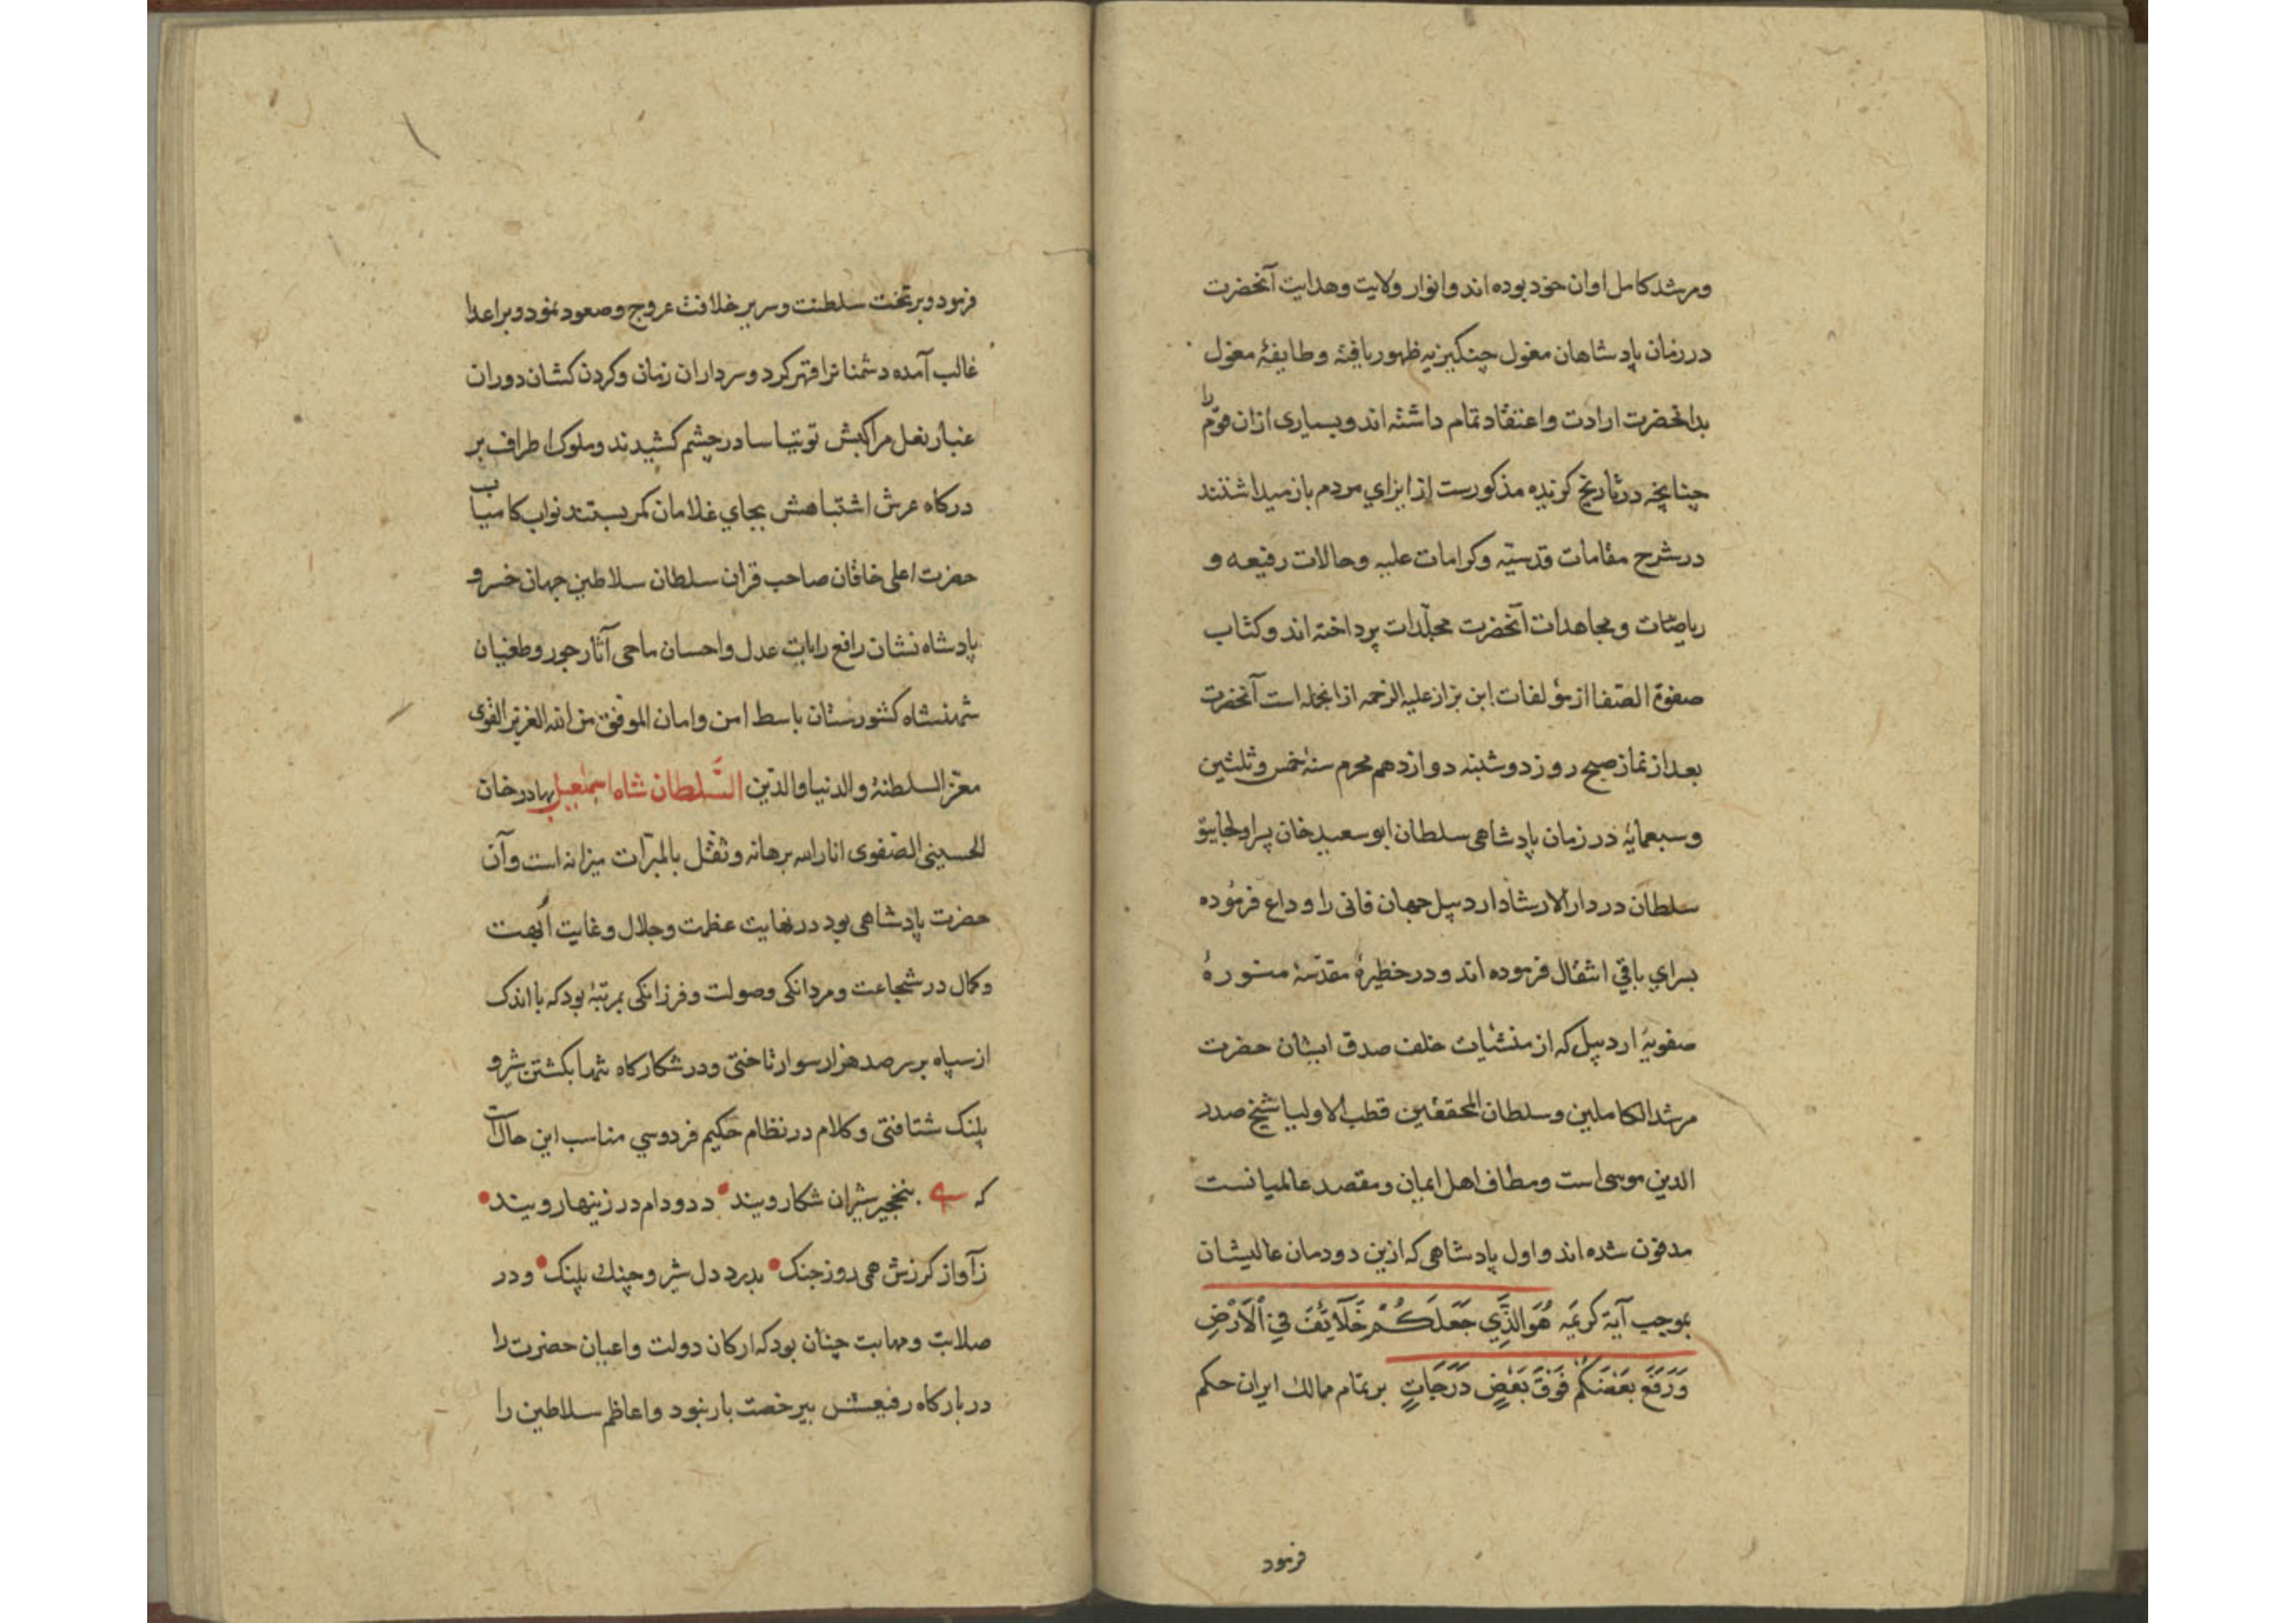 ومرشد کامل اوان خود بوده اند و انوار ولایت و هدایت آنحضرت
در زمان پادشاهان مغول چنکیزیه ظهور یافته و طایفهٔ مغول
بدانحضرت ارادت و اعتقاد تمام داشته اند و بسیاری ازان قوم را
چنانچه در تاریخ کزیده مذکورست از ایزاي مردم باز میداشتند
در شرح مقامات قدسیّه و کرامات علیه و حالات رفیعه و
ریاضات و مجاهدات آنحضرت مجلّدات پرداخته اند و کتاب
صفوة الصّفا از مؤلفات ابن بزاز علیه الرحمه ازانجمله است آنحضرت
بعد از نماز صبح روز دوشنبه دوازدهم محرم سنهٔ خمس و ثلثین
و سبعمایهٔ در زمان پادشاهی سلطان ابو سعید خان پسر اولجایتو
سلطان در دار الارشاد اردبیل جهان فانی را وداع فرموده
بسراي باقي انتقال فرموده اند و در حظیرهٔ مقدّسهٔ منورهٔ
صفویهٔ اردبیل که از منشئات خلف صدق ایشان حضرت
مرشد الکاملین و سلطان المحققین قطب الاولیا شیخ صدر
الدین موسی است و مطاف اهل ایمان و مقصد عالمیانست
مدفون شده اند و اول پادشاهی که ازین دودمان عالیشان
بموجب آیهٔ کریمَه هُوَ الَّذِي جَعَلَكُمْ خَلَآئِفَ فِي الْاَرْضِ
وَرَفَعَ بَعْضَكُمْ فَوْقَ بَعْضٍ دَرَجَاتٍ بر تمام ممالك ایران حکم
فرمود
فرمود و بر تخت سلطنت و سریر خلافت عروج و صعود نمود و بر اعدا
غالب آمده دشمنانرا قهر کرد و سرداران زمان و کردن کشان دوران
غبار نعل مراکبش توتیا سا در چشم کشیدند و ملوک اطراف بر
درکاه عرش اشتباهش بجاي غلامان کمر بستند نواب کامیاب
حضرت اعلی خاقان صاحب قران سلطان سلاطین جهان خسرو
پادشاه نشان رافع رایات عدل و احسان ماحی آثار جور و طغیان
شهنشاه کشورستان باسط امن و امان الموفق من الله العزیز القوی
معز السلطنهٔ و الدنیا و الدّین السّلطان شاه اسمٰعیل بهادر خان
الحسینی الصّفوی انار الله برهانه و ثقل بالمبرّات میزانه است و آن
حضرت پادشاهی بود در نهایت عظمت و جلال و غایت اُبّهت
و کمال در شجاعت و مردانکی و صولت و فرزانکی بمرتبهٔ بود که با اندک
از سپاه بر سر صد هزار سوار تاختی و در شکارکاه تنها بکشتن شیر و
پلنک شتافتی و کلام در نظام حکیم فردوسي مناسب این حالت
که بنخجیر شیران شکار ویند دد و دام در زینهار ویند
زآواز کرزش همی روز جنک بدرد دل شیر و چنك پلنک و در
صلابت و مهابت چنان بود که ارکان دولت و اعیان حضرت را
در بارکاه رفیعش بیرخصت بار نبود و اعاظم سلاطین را